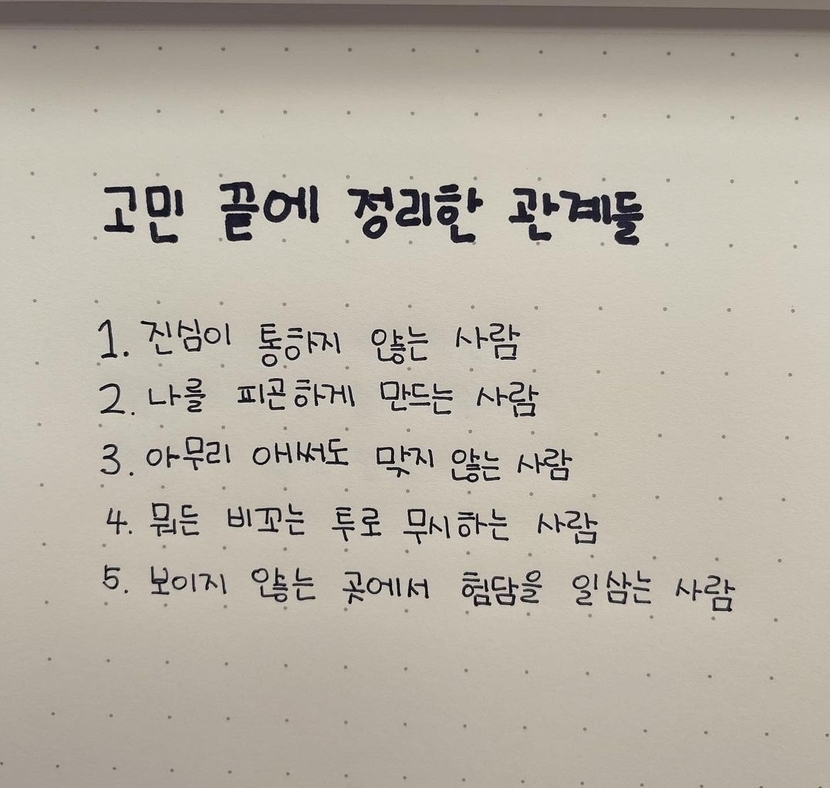 고민 끝에 정리한 관계들
1. 진심이 통하지 않는 사람
2. 나를 피곤하게 만드는 사람
3. 아무리 애써도 맞지 않는 사람
4. 뭐든 비꼬는 투로 무시하는 사람
5. 보이지 않는 곳에서 험담을 일삼는 사람